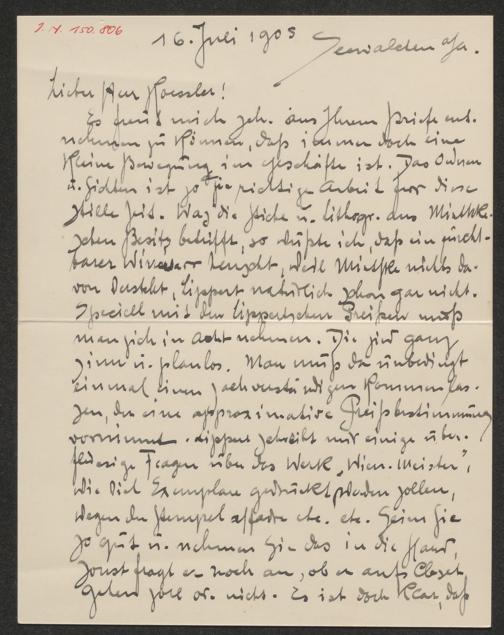 J. N. 150.806
16. Juli 1905
Seewalchen a/A.
Lieber Herr Hoessler!
Es freut mich sehr aus Ihrem Briefe ent-
nehmen zu können, daß immer doch eine
kleine Bewegung im Geschäfte ist. Das Ordnen
u. Sichten ist ja die richtige Arbeit für diese
stille Zeit. Was die Stiche u. Lithogr. aus Miethke-
schen Besitz betrifft, so wußte ich, daß ein furcht-
barer Wirrwarr herrscht, weil Miethke nichts da-
von versteht, Lippert natürlich schon gar nicht.
Speciell mit den Lippertschen Preisen muß
man sich in Acht nehmen. Die sind ganz
sinn u. planlos. Man muß da unbedingt
einmal einen Sachverständigen kommen las-
sen, der eine approximative Preisbestimmung
vornimmt. Lippert schreibt mir einige über-
flüssige Fragen über das Werk „Wien. Meister",
wie viel Exemplare gedruckt werden sollen,
wegen der Stempelaffaire etc. etc. Seien Sie
so gut u. nehmen Sie das in die Hand,
sonst fragt er noch an, ob er aufs Closet
gehen soll od. nicht. Es ist doch klar, daß